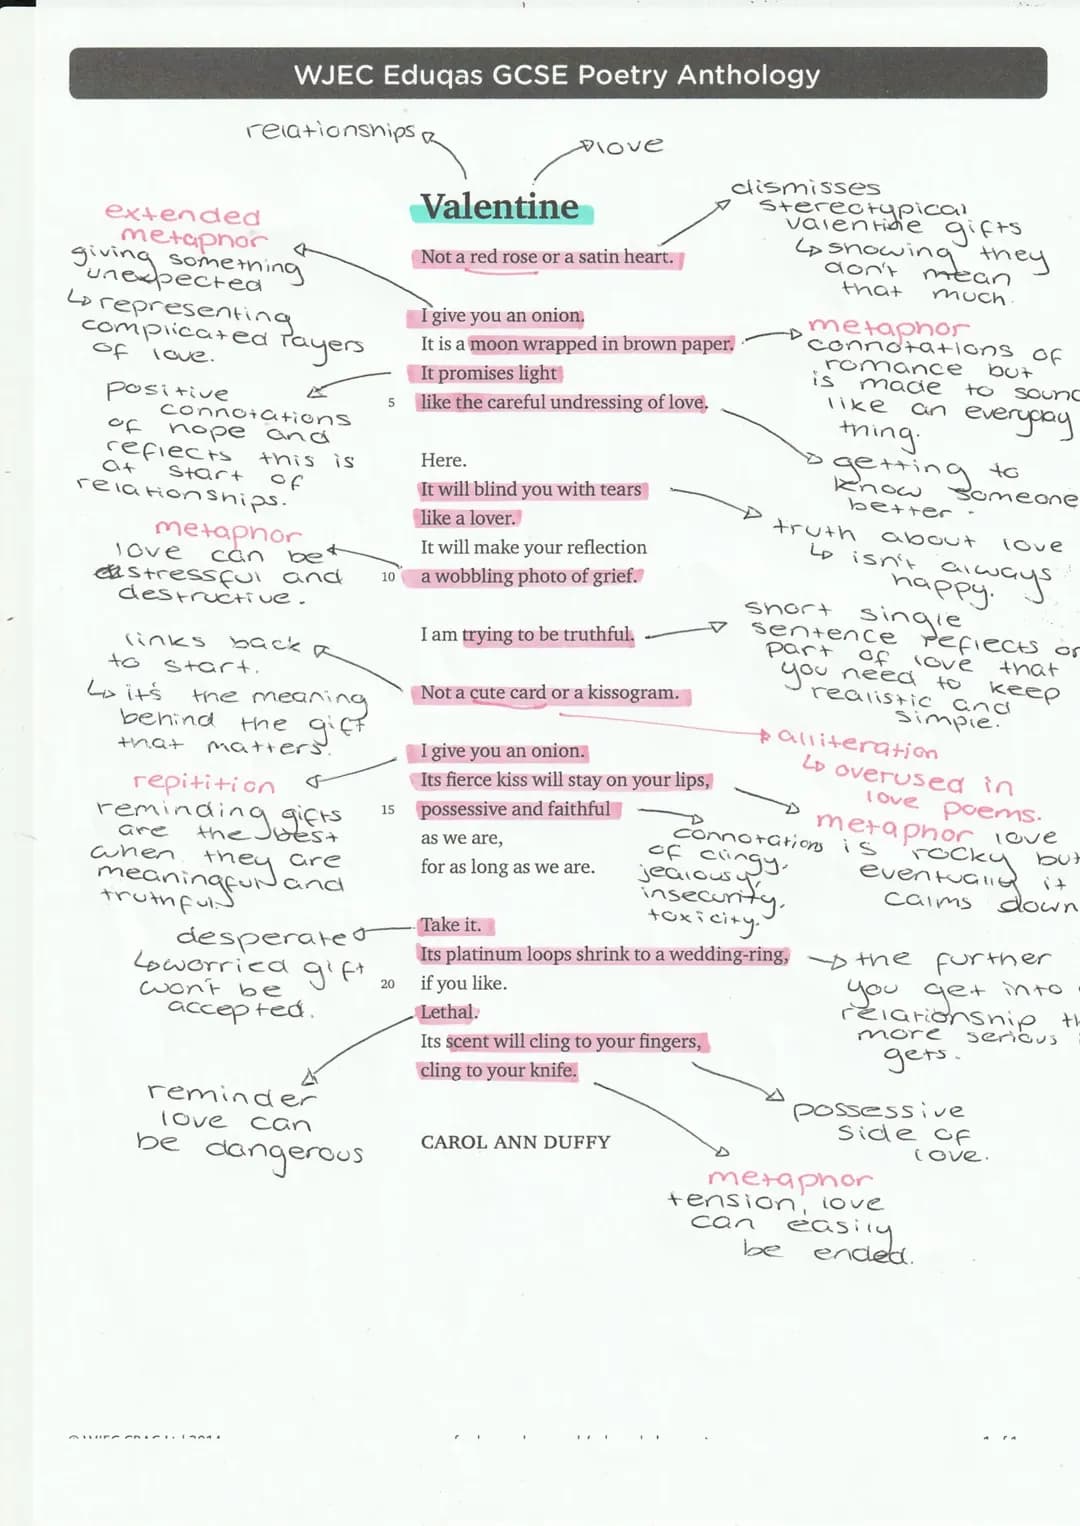 WJEC Eduqas GCSE Poetry Anthology
relationships
love
Valentine
dismisses
stereotypical
valentine gifts
↳ showing they
don't mean
that much.
extended
metaphor
giving something
unexpected
↳ representing
complicated layers
of love.
Not a red rose or a satin heart.
I give you an onion.
It is a moon wrapped in brown paper.
It promises light
5 like the careful undressing of love.
metaphor
connotations of
romance but
is made to sound
like an everyday
thing.
positive
connotations
of hope and
reflects this is
at start of
relationships.
getting to
know someone
better.
Here.
It will blind you with tears
like a lover.
It will make your reflection
10 a wobbling photo of grief.
truth about love
↳ isn't always
happy.
metaphor
love can be
distressful and
destructive.
I am trying to be truthful.
short single
sentence reflects on
part of love that
you need to keep
realistic and
simple.
links back
to start.
↳ it's the meaning
behind the gift
that matters.
Not a cute card or a kissogram.
alliteration
↳ overused in
love poems.
I give you an onion.
Its fierce kiss will stay on your lips,
15 possessive and faithful
as we are,
for as long as we are.
repitition
reminding gifts
are the best
when they are
meaningful and
truthful.
metaphor love
is rocky but
eventually it
calms down
connotations
of clingy,
jealousy,
insecurity,
toxicity.
Take it.
Its platinum loops shrink to a wedding-ring,
20 if you like.
Lethal.
Its scent will cling to your fingers,
cling to your knife.
desperate
↳ worried gift
won't be
accepted.
the further
you get into
relationship
more serious
gets.
reminder
love can
be dangerous
possessive
side of
love.
CAROL ANN DUFFY
metaphor
tension, love
can easily
be ended.